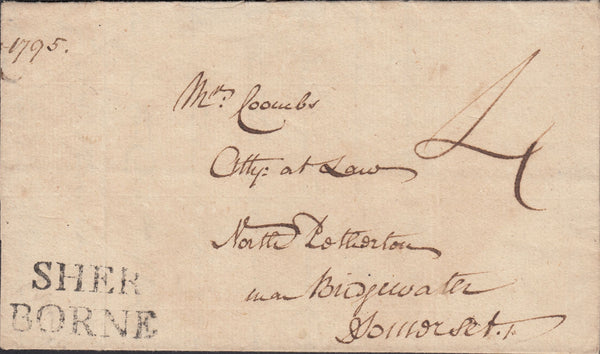 1795.
Mr. Coombs
4
Atty: at Law
North Petherton
near Bridgewater
Somerset.
SHER
BORNE